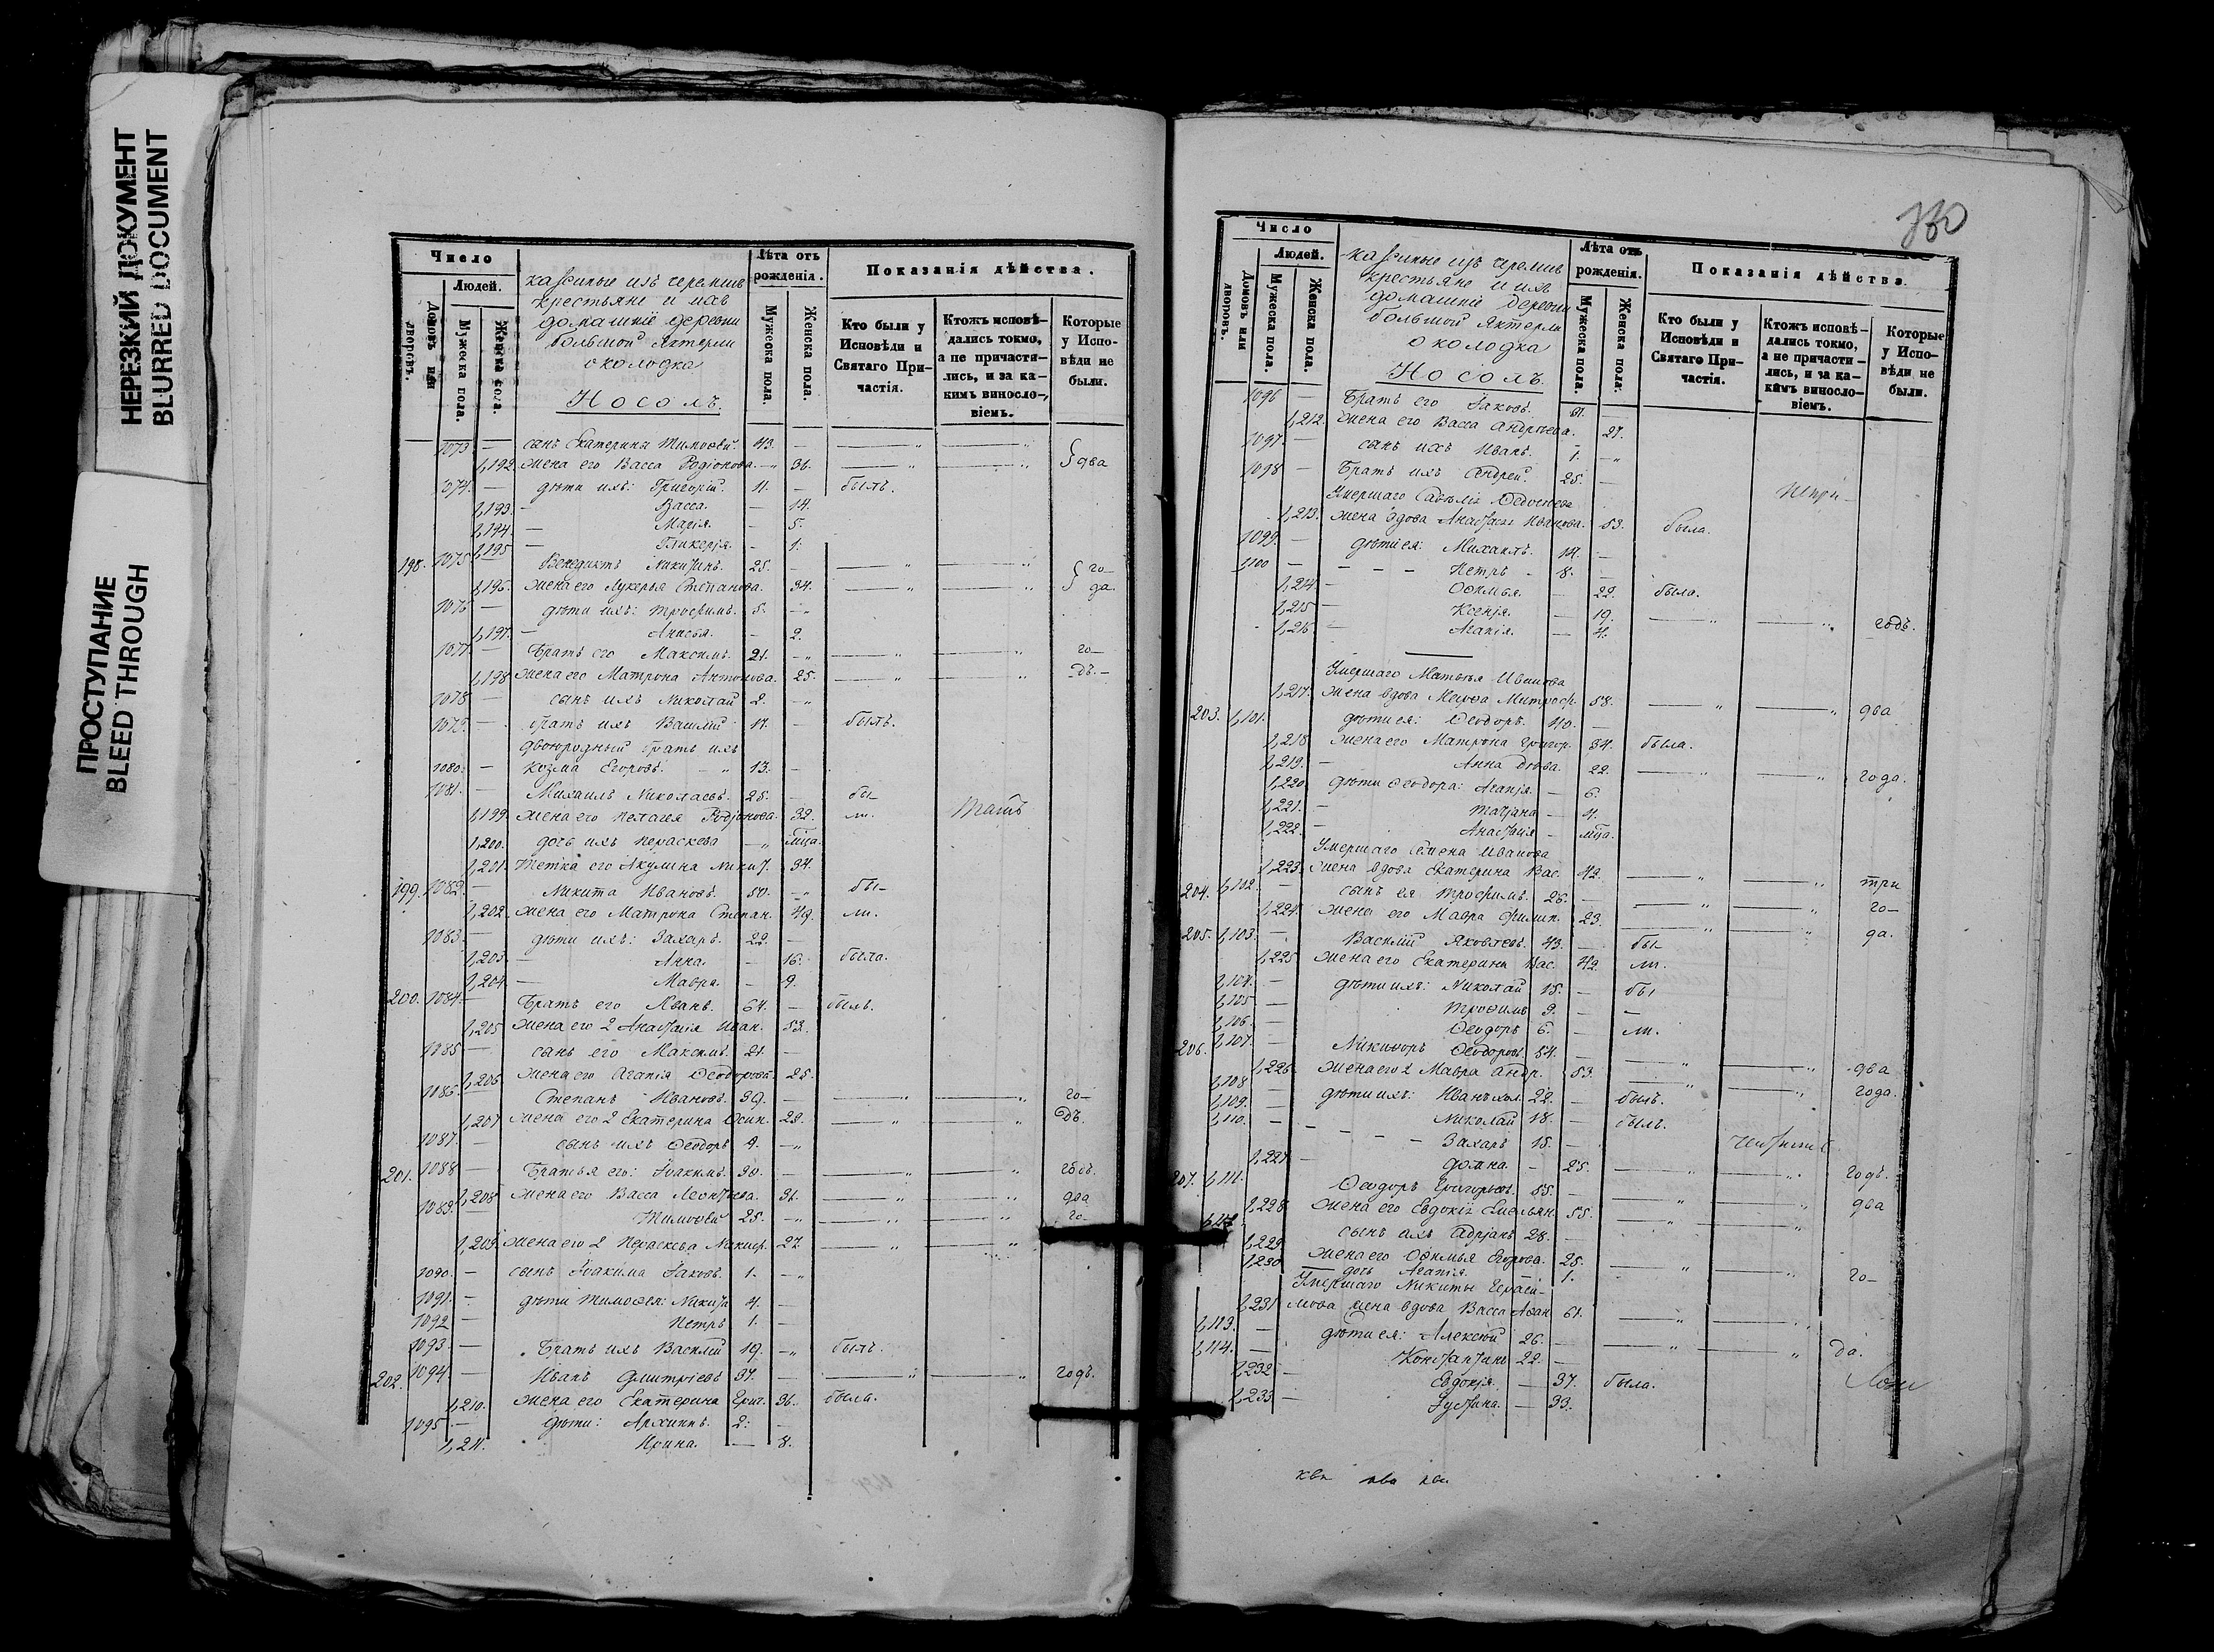 НЕРЕЗКИЙ ДОКУМЕНТ
BLURRED DOCUMENT
ПРОСТУПАНИЕ
BLEED THROUGH
Число
Людей.
Домовъ или дворовъ.
Мужеска пола.
Женска пола.
казенные изъ черемисъ
крестьяне и ихъ
домашніе деревни
большой Яктерли
околодка
Носолъ.
Лѣта отъ рожденія.
Мужеска пола.
Женска пола.
Показанія дѣйства.
Кто были у Исповѣди и Святаго Причастія.
Ктожъ исповѣдались токмо, а не причастились, и за какимъ винословіемъ.
Которые у Исповѣди не были.
1073 — сынъ Екатерины Тимоѳей. 43. — — " — "
1,192 жена его Васса Родіонова. — " 36. — " — " } два
1074. — дѣти ихъ: Григорій. 11. — былъ.
1,193. — Васса. — 14.
1,194. — Марія. — 5.
1,195 — Гликерія. — 1.
198. 1075 — Венедиктъ Никитинъ. 25. — — " — " } го-
1,196. жена его Лукерья Степанова. 34. — " — " } да.
1076 — дѣти ихъ: Трофимъ. 5. — "
1,197. — Анисья. — 2.
1077. — Братъ его Максимъ. 21. — " — " — " го-
1,198 жена его Матрона Антонова. 25. — " — " дъ. —
1078 — сынъ ихъ Николай 2. — "
1079. — братъ ихъ Василій 17. — былъ.
двоюродный братъ ихъ
1080. — Козма Егоровъ. — " 13. —
1081. — Михаилъ Николаевъ. 25. — бы-
1,199 жена его Пелагея Родіонова. 32. ли.
1,200. дочь ихъ Параскева — " мца.
1,201. Тетка его Акулина Никит. 34.
199. 1082. — Никита Ивановъ. 50. — " бы-
1,202. жена его Матрона Степан. 49. ли.
1083. — дѣти ихъ: Захаръ. 22. —
1,203. — Анна. — 16. была.
1,204. — Мавра. — 9.
200. 1084. — Братъ его Иванъ. 64. — былъ.
1,205 жена его 2 Анастасія Иван. 53.
1085 — сынъ его Максимъ. 21. —
1,206. жена его Агапія Ѳеодорова. 25.
1086. — Степанъ Ивановъ. 39. — — " — " го-
1,207 жена его 2 Екатерина Осип. 29. — " — " дъ.
1087. — сынъ ихъ Ѳеодоръ 4. — "
201. 1088 — Братья его: Іоакимъ. 30. — — " — " годъ.
1,208 жена его Васса Леонтьева. 36. — " — " два
1089. Тимоѳей 25. — " — " — " го-
1,209. жена его 2 Параскева Никиф. 27. — " — "
1090. — сынъ Іоакима Іаковъ. 1. — "
1091. — дѣти Тимоѳея: Никита 4. —
1092 — Петръ 1. —
1093. — Братъ ихъ Василій 19. — " былъ.
202. 1094. — Иванъ Дмитріевъ 37. — — " — " годъ.
1,210. жена его Екатерина Григ. 36. была.
1095 — дѣти: Архиппъ. 2. —
1,211. Ирина. — 8.
330
Число
Людей.
Домовъ или дворовъ.
Мужеска пола.
Женска пола.
казенные изъ черемисъ
крестьяне и ихъ
домашніе деревни
большой Яктерли
околодка
Носолъ.
Лѣта отъ рожденія.
Мужеска пола.
Женска пола.
Показанія дѣйства.
Кто были у Исповѣди и Святаго Причастія.
Ктожъ исповѣдались токмо, а не причастились, и за какимъ винословіемъ.
Которые у Исповѣди не были.
1096 — Братъ его Іаковъ. —
1,212. жена его Васса Андреева. 27.
1097. — сынъ ихъ Иванъ. 1. — "
1098 — Братъ ихъ Андрей. 25. —
Умершаго Савелія Ѳедосѣева
1,213. жена вдова Анастасія Иванова. 53. была.
1099. — дѣти ея: Михаилъ. 14. —
1100 — Петръ 8. —
1,214. — Офимья. — 22. была.
1,215 — Ксенія. — 19. — " — " годъ.
1,216 — Агапія. — 4.
Умершаго Матвѣя Иванова
1,217. жена вдова Митроф. 58. — " — " два
203. 1,101. дѣти ея: Ѳеодоръ. 40. —
1,218. жена его Матрона Григор. 34. была.
1,219. — Анна дѣва. 22. — " — " года.
1,220 дѣти Ѳеодора: Агапія. — 6.
1,221. — Татіана — 4.
1,222. — Анастасія — мца.
Умершаго Семена Иванова
1,223. жена вдова Екатерина Вас. 42. — " — " три
204. 1,102. — сынъ ея Трофимъ. 26. — — " — " го-
1,224. жена его Мавра Филип. 23. — " — " да.
205. 1,103. — Василій Яковлевъ. 43. — бы-
1,225 жена его Екатерина Вас. 42. ли.
1,104. — дѣти ихъ: Николай 15. — бы
1,105 — Трофимъ 9. — —
1,106. — Ѳеодоръ 6. — ли.
206. 1,107. — Никифоръ Ѳеодоровъ. 54. —
1,226. жена его 2 Мавра Андр. 53. — " — " два
1,108 — дѣти ихъ: Иванъ хол. 22. — былъ. года.
1,109. — Николай 18. — былъ.
1,110. — Захаръ 15. —
1,227. — Домна. — 25. — " — " годъ.
207. 1,111. Ѳеодоръ Григорьевъ. 55. — — " два
1,228. жена его Евдокія Емельян. 55. — " — "
сынъ ихъ Адріанъ 28. —
1,229. жена его Офимья Егорова. 25. — " — " го-
1,230 — дочь Агапія. 1.
Умершаго Никиты Гераси-
1,231 мова жена вдова Васса Афан. 61. — " — "
1,113. — дѣти ея: Алексѣй 26. — — " — " да.
1,114. — Константинъ 22. —
1,232 — Евдокія. — 37. была.
1,233 — Іустина. — 33.